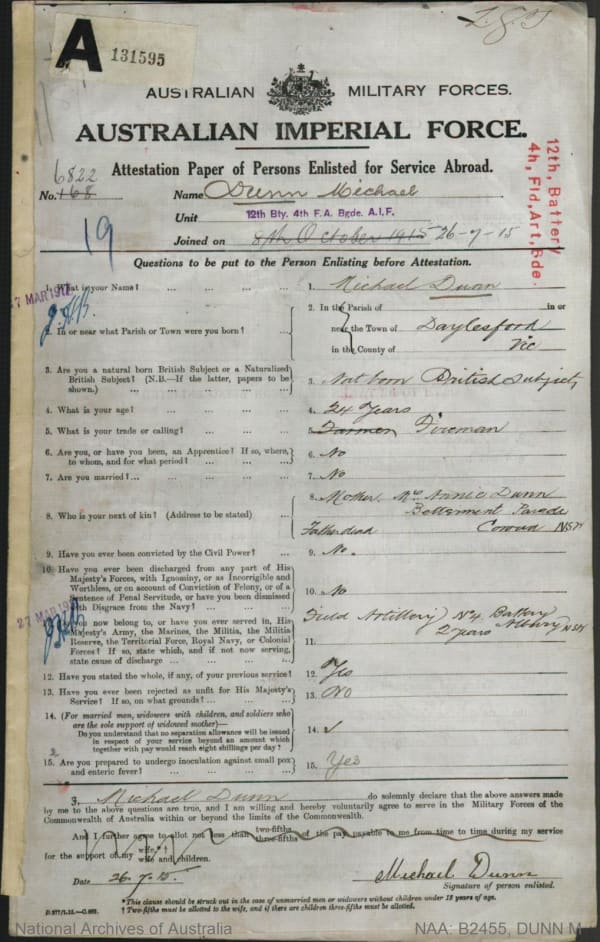 A 131595
AUSTRALIAN MILITARY FORCES.
AUSTRALIAN IMPERIAL FORCE.
Attestation Paper of Persons Enlisted for Service Abroad.
12th, Battery
4h, Fld, Art, Bde.
6822
No. 168 Name Dunn Michael
Unit 12th Bty. 4th F.A. Bgde. A.I.F.
19
Joined on 8th October 1915 26-7-15
Questions to be put to the Person Enlisting before Attestation.
1. What is your Name? 1. Michael Dunn
27 MAR 1917
2. In or near what Parish or Town were you born? 2. In the Parish of in or
near the Town of Daylesford
in the County of Vic
3. Are you a natural born British Subject or a Naturalized
British Subject? (N.B.—If the latter, papers to be
shown.) 3. Nat born British Subject
4. What is your age? 4. 24 Years
5. What is your trade or calling? 5. Farmer Fireman
6. Are you, or have you been, an Apprentice? If so, where,
to whom, and for what period? 6. No
7. Are you married? 7. No
8. Who is your next of kin? (Address to be stated) 8. Mother. Mrs Annie Dunn
Betterment Parade
Father dead Corowa NSW
9. Have you ever been convicted by the Civil Power? 9. No.
10. Have you ever been discharged from any part of His
Majesty's Forces, with Ignominy, or as Incorrigible and
Worthless, or on account of Conviction of Felony, or of a
Sentence of Penal Servitude, or have you been dismissed
with Disgrace from the Navy? 10. No
27 MAR 191
11. Do you now belong to, or have you ever served in, His
Majesty's Army, the Marines, the Militia, the Militia
Reserve, the Territorial Force, Royal Navy, or Colonial
Forces? If so, state which, and if not now serving,
state cause of discharge 11. Field Artillery No 4 Battery
2 years Albury NSW
12. Have you stated the whole, if any, of your previous service? 12. Yes
13. Have you ever been rejected as unfit for His Majesty's
Service? If so, on what grounds? 13. NO
14. (For married men, widowers with children, and soldiers who
are the sole support of widowed mother)—
Do you understand that no separation allowance will be issued
in respect of your service beyond an amount which
together with pay would reach eight shillings per day? 14.
15. Are you prepared to undergo inoculation against small pox
and enteric fever? 15. Yes
I, Michael Dunn do solemnly declare that the above answers made
by me to the above questions are true, and I am willing and hereby voluntarily agree to serve in the Military Forces of the
Commonwealth of Australia within or beyond the limits of the Commonwealth.
And I further agree to allot not less than two-fifths three-fifths of the pay payable to me from time to time during my service
for the support of my wife,* † wife and children.
Date 26.7.15. Michael Dunn
Signature of person enlisted.
*This clause should be struck out in the case of unmarried men or widowers without children under 18 years of age.
† Two-fifths must be allotted to the wife, and if there are children three-fifths must be allotted.
National Archives of Australia NAA: B2455, DUNN M